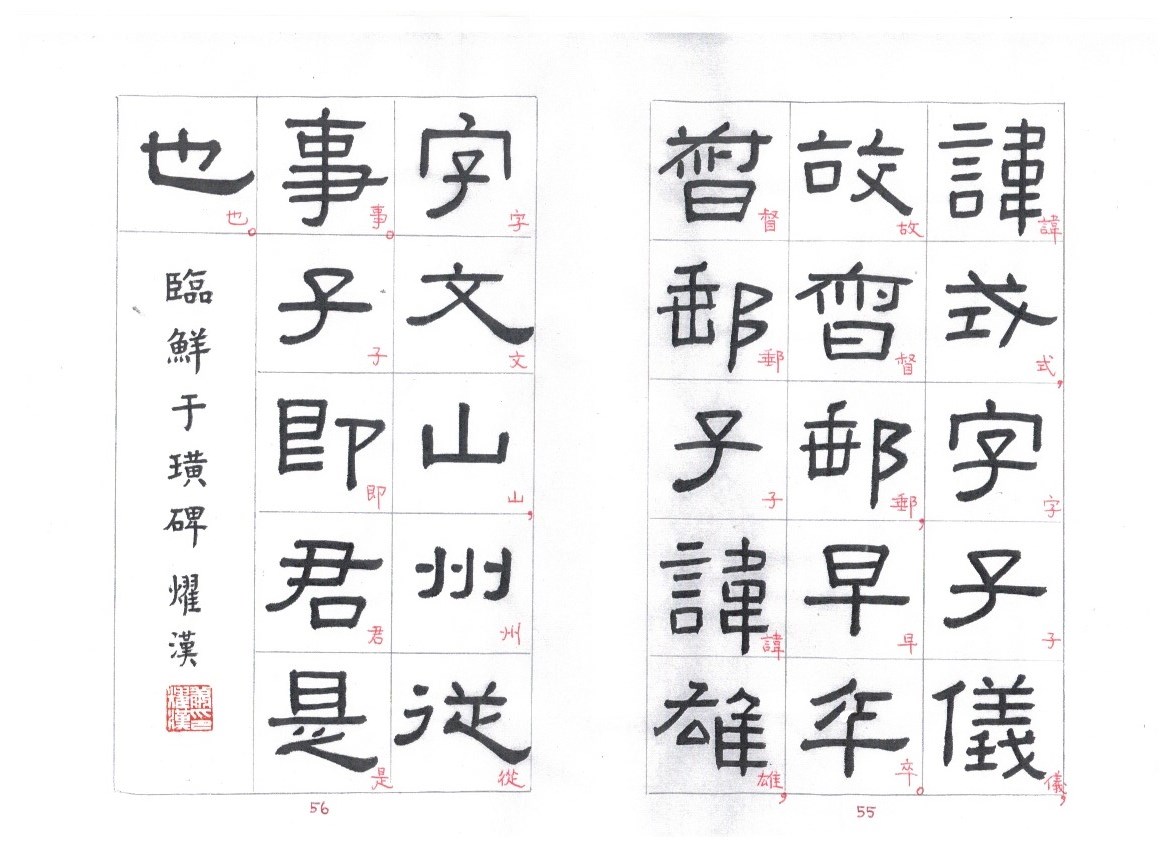 諱式字子儀
諱式，字子儀，
故督郵早卒
故督郵，早卒。
督郵子諱雄
督郵子諱雄，
55
字文山州從
字文山，州從
事子即君是
事。子即君是
也
也。
臨鮮于璜碑 燿漢
56